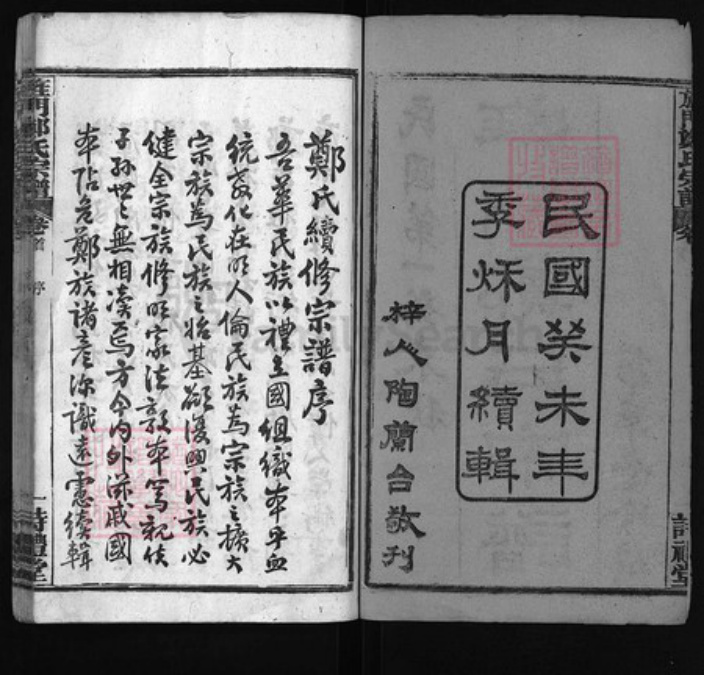 民國癸未年
季秌月續輯
梓人陶蘭台敬刊
詩禮堂
鄭氏續修宗譜序
吾華民族以禮立國組織本乎血
統教化在明人倫民族為宗族之擴大
宗族為民族之始基欲復興民族必
健全宗族修明家法敦本篤親使
子孫世々無相凟焉方今內外滋戚國
本阽危鄭族諸彥深識遠慮續輯
鄭氏宗譜
卷首
序
一
詩禮堂